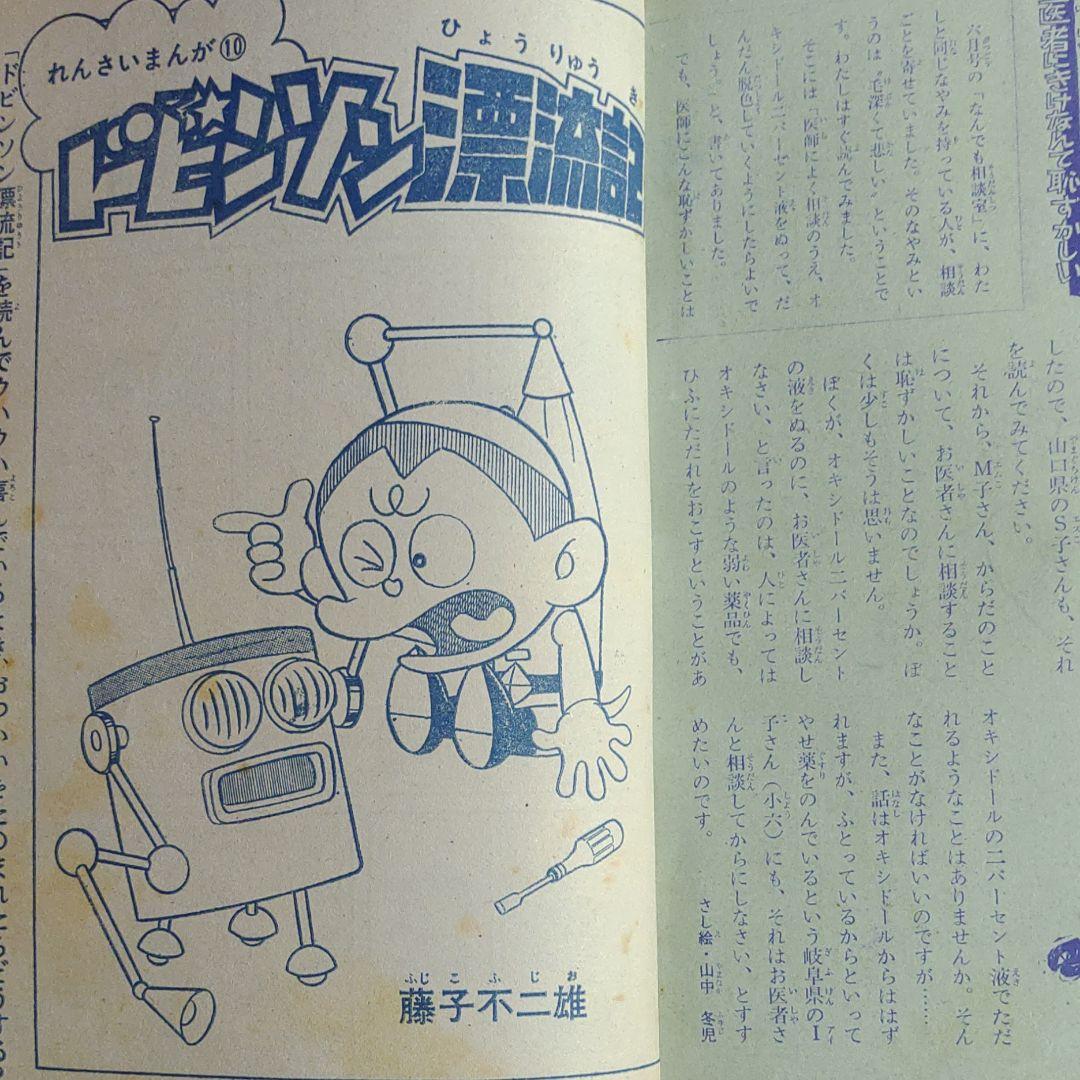 医者にきけなんて恥ずかしい
六月号の「なんでも相談室」に、わた
しと同じなやみを持っている人が、相談
ごとを寄せていました。そのなやみとい
うのは〝毛深くて悲しい〟ということで
す。わたしはすぐ読んでみました。
そこには「医師によく相談のうえ、オ
キシドール二パーセント液をぬって、だ
んだん脱色していくようにしたらよいで
しょう」と、書いてありました。
でも、医師にこんな恥ずかしいことは
したので、山口県のS子さんも、それ
を読んでみてください。
それから、M子さん、からだのこと
について、お医者さんに相談すること
は恥ずかしいことなのでしょうか。ぼ
くは少しもそうは思いません。
ぼくが、オキシドール二パーセント
の液をぬるのに、お医者さんに相談し
なさい、と言ったのは、人によっては
オキシドールのような弱い薬品でも、
ひふにただれをおこすということがあ
オキシドールの二パーセント液でただ
れるようなことはありませんか。そん
なことがなければいいのですが……
また、話はオキシドールからははず
れますが、ふとっているからといって
やせ薬をのんでいるという岐阜県のI
子さん(小六)にも、それはお医者さ
んと相談してからにしなさい、とすす
めたいのです。
さし絵・山中冬児
れんさいまんが⑩
ドビンソン漂流記
ひょうりゅうき
藤子不二雄
ふじこふじお
「ドビンソン漂流記」を読んでウハウハ喜んでいるとき、